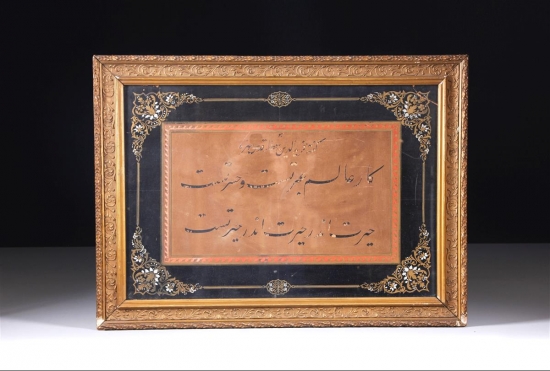 کار عالم عبرتست و حسرتست
حیرت اندر حیرت اندر حیرتست